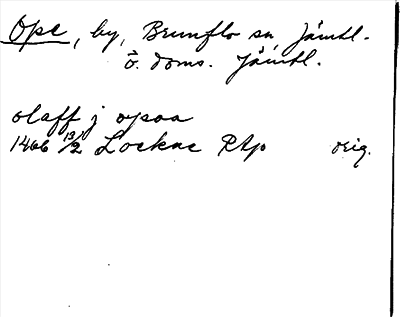 Ope, by, Brunflo sn Jämtl.
Ö. doms. Jämtl.
olaff j opaa
1466 13/2 Lockne RAp orig.